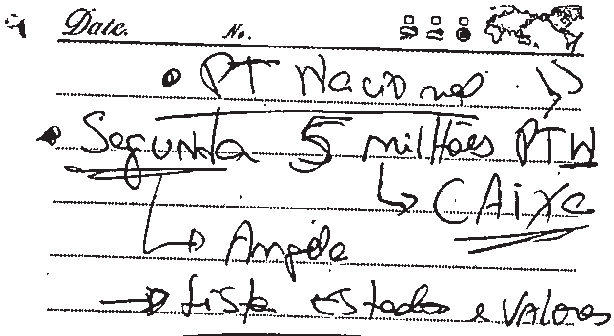 Date. No.
• PT Nacional
• Segunda 5 milhões PTN
↳ CAixa
↳ Angola
→ Lista estados e valores